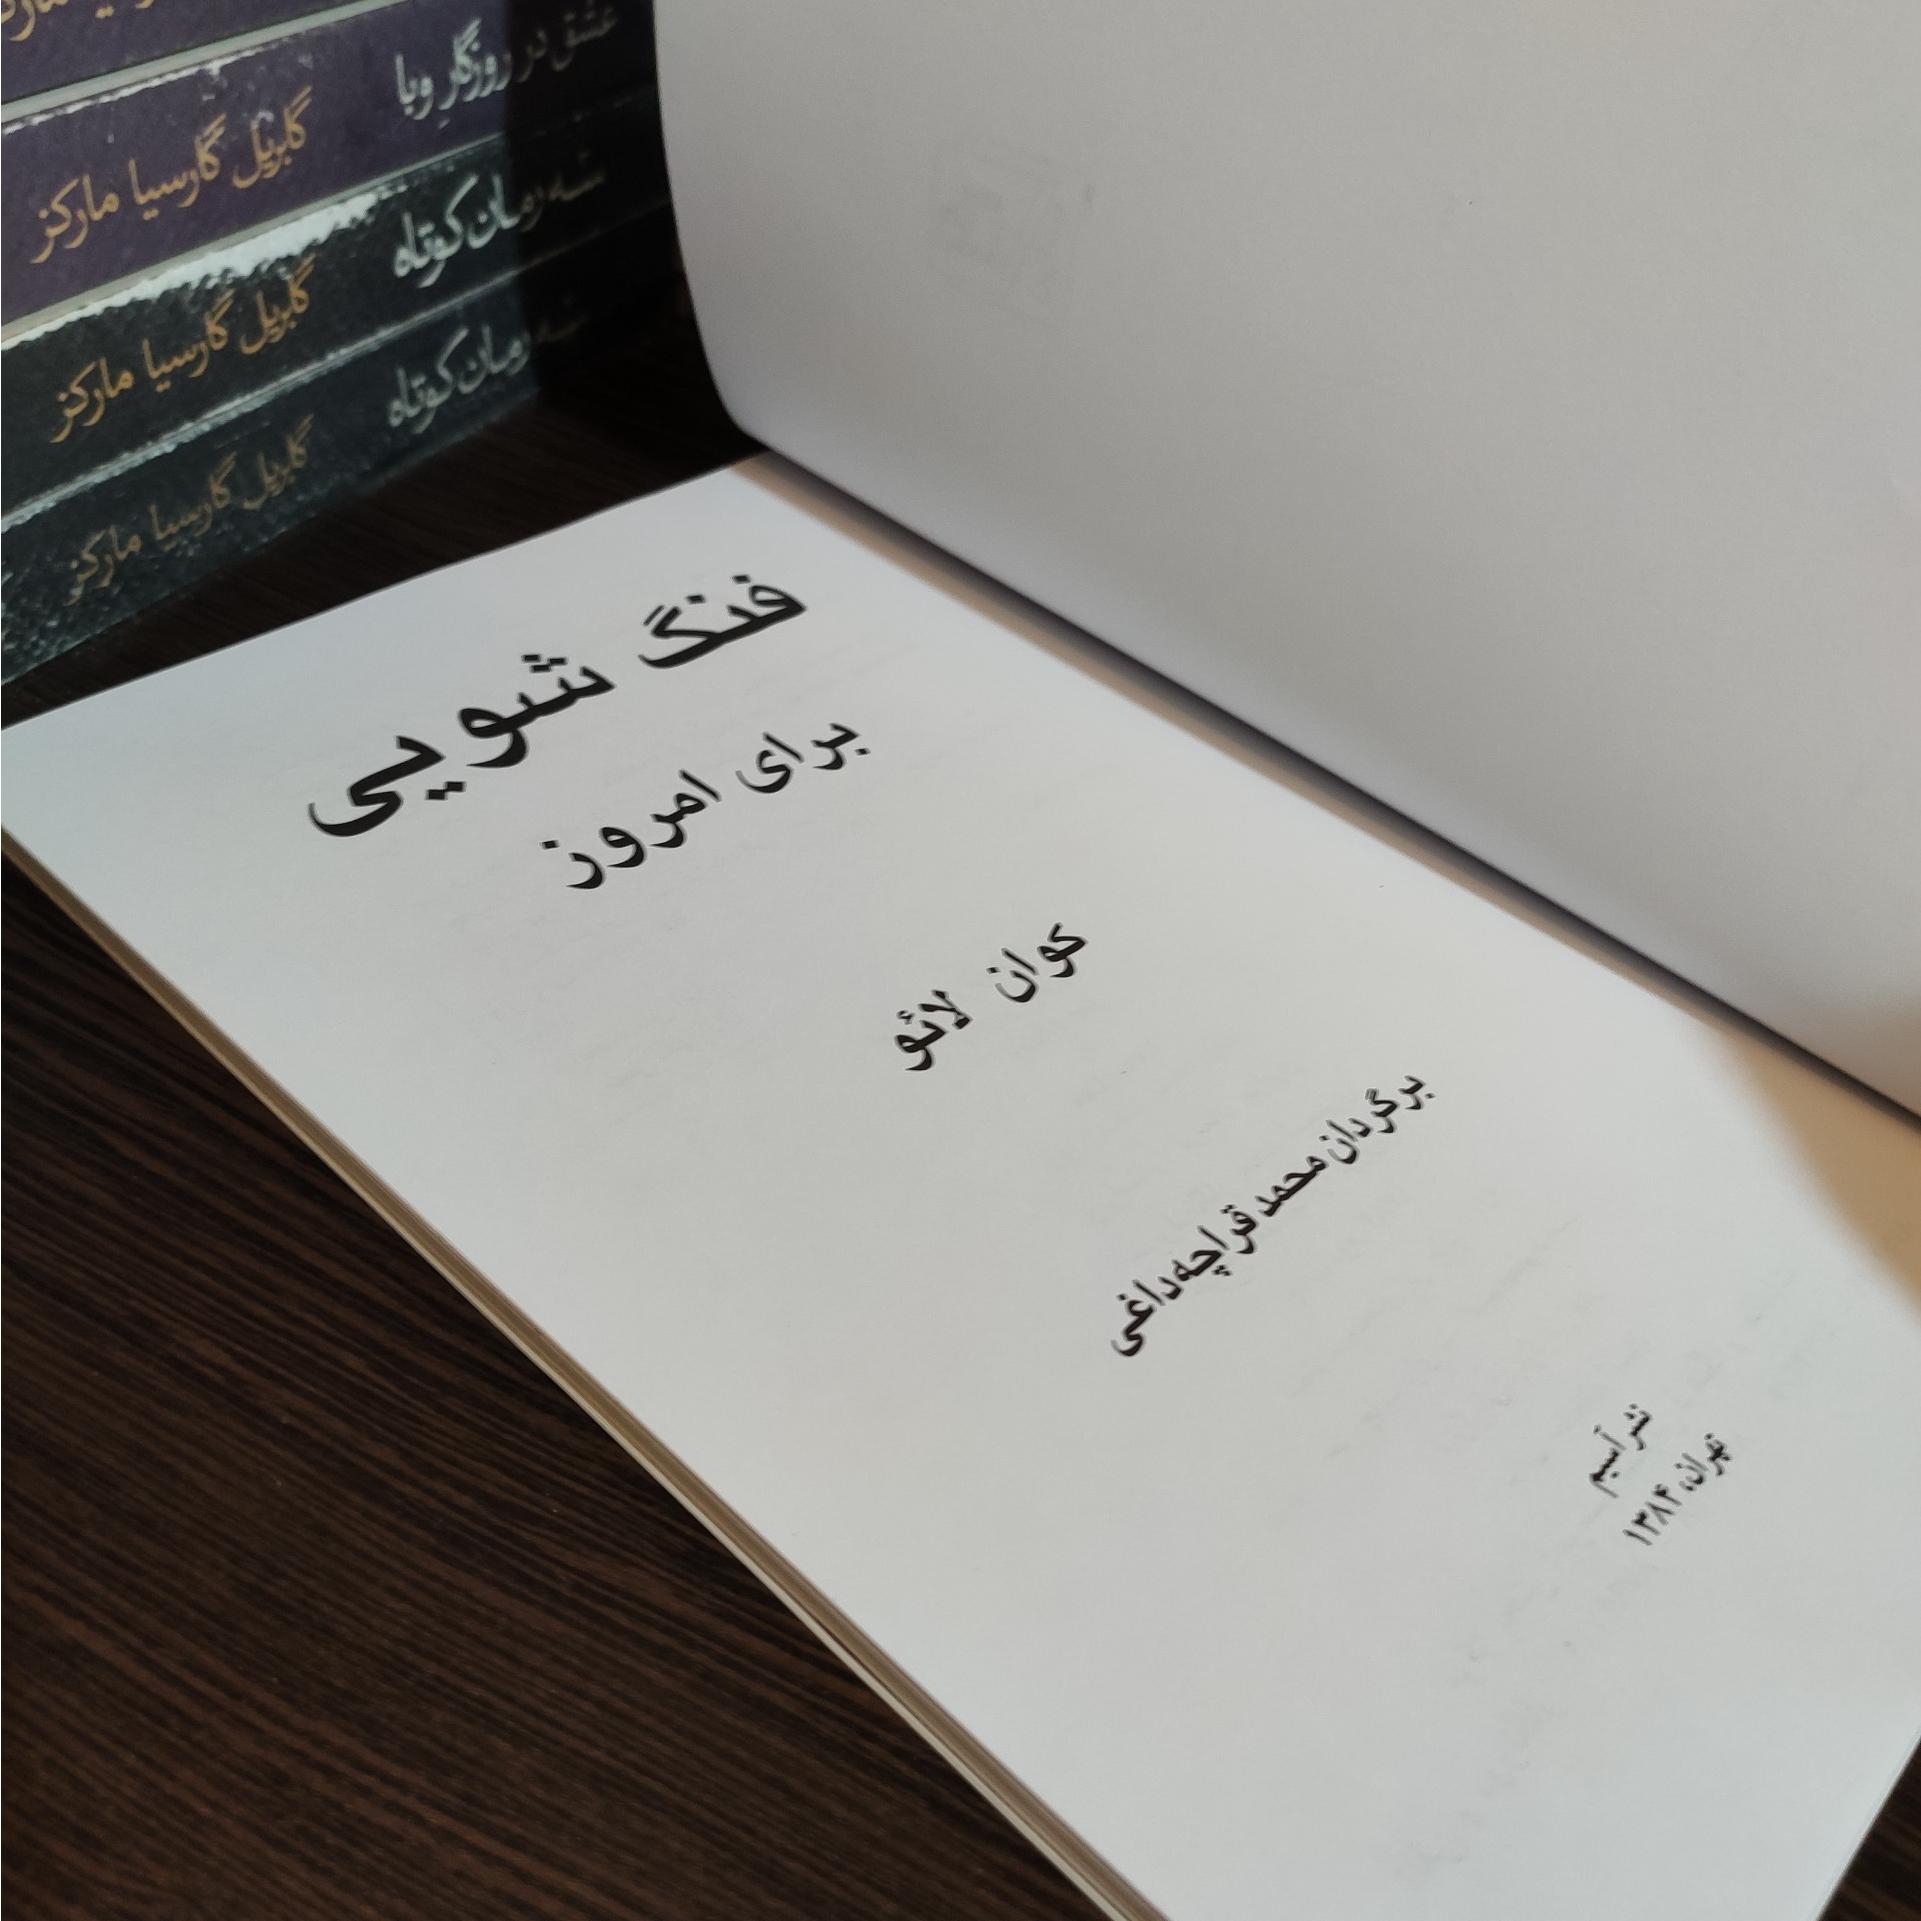 عشق در روزگار وبا
گابریل گارسیا مارکز
سه رمان کوتاه
گابریل گارسیا مارکز
سه رمان کوتاه
گابریل گارسیا مارکز
فنگ شویی
برای امروز
کوان لائو
برگردان محمد قراچه‌داغی
نشر آسیم
تهران، ۱۳۸۴